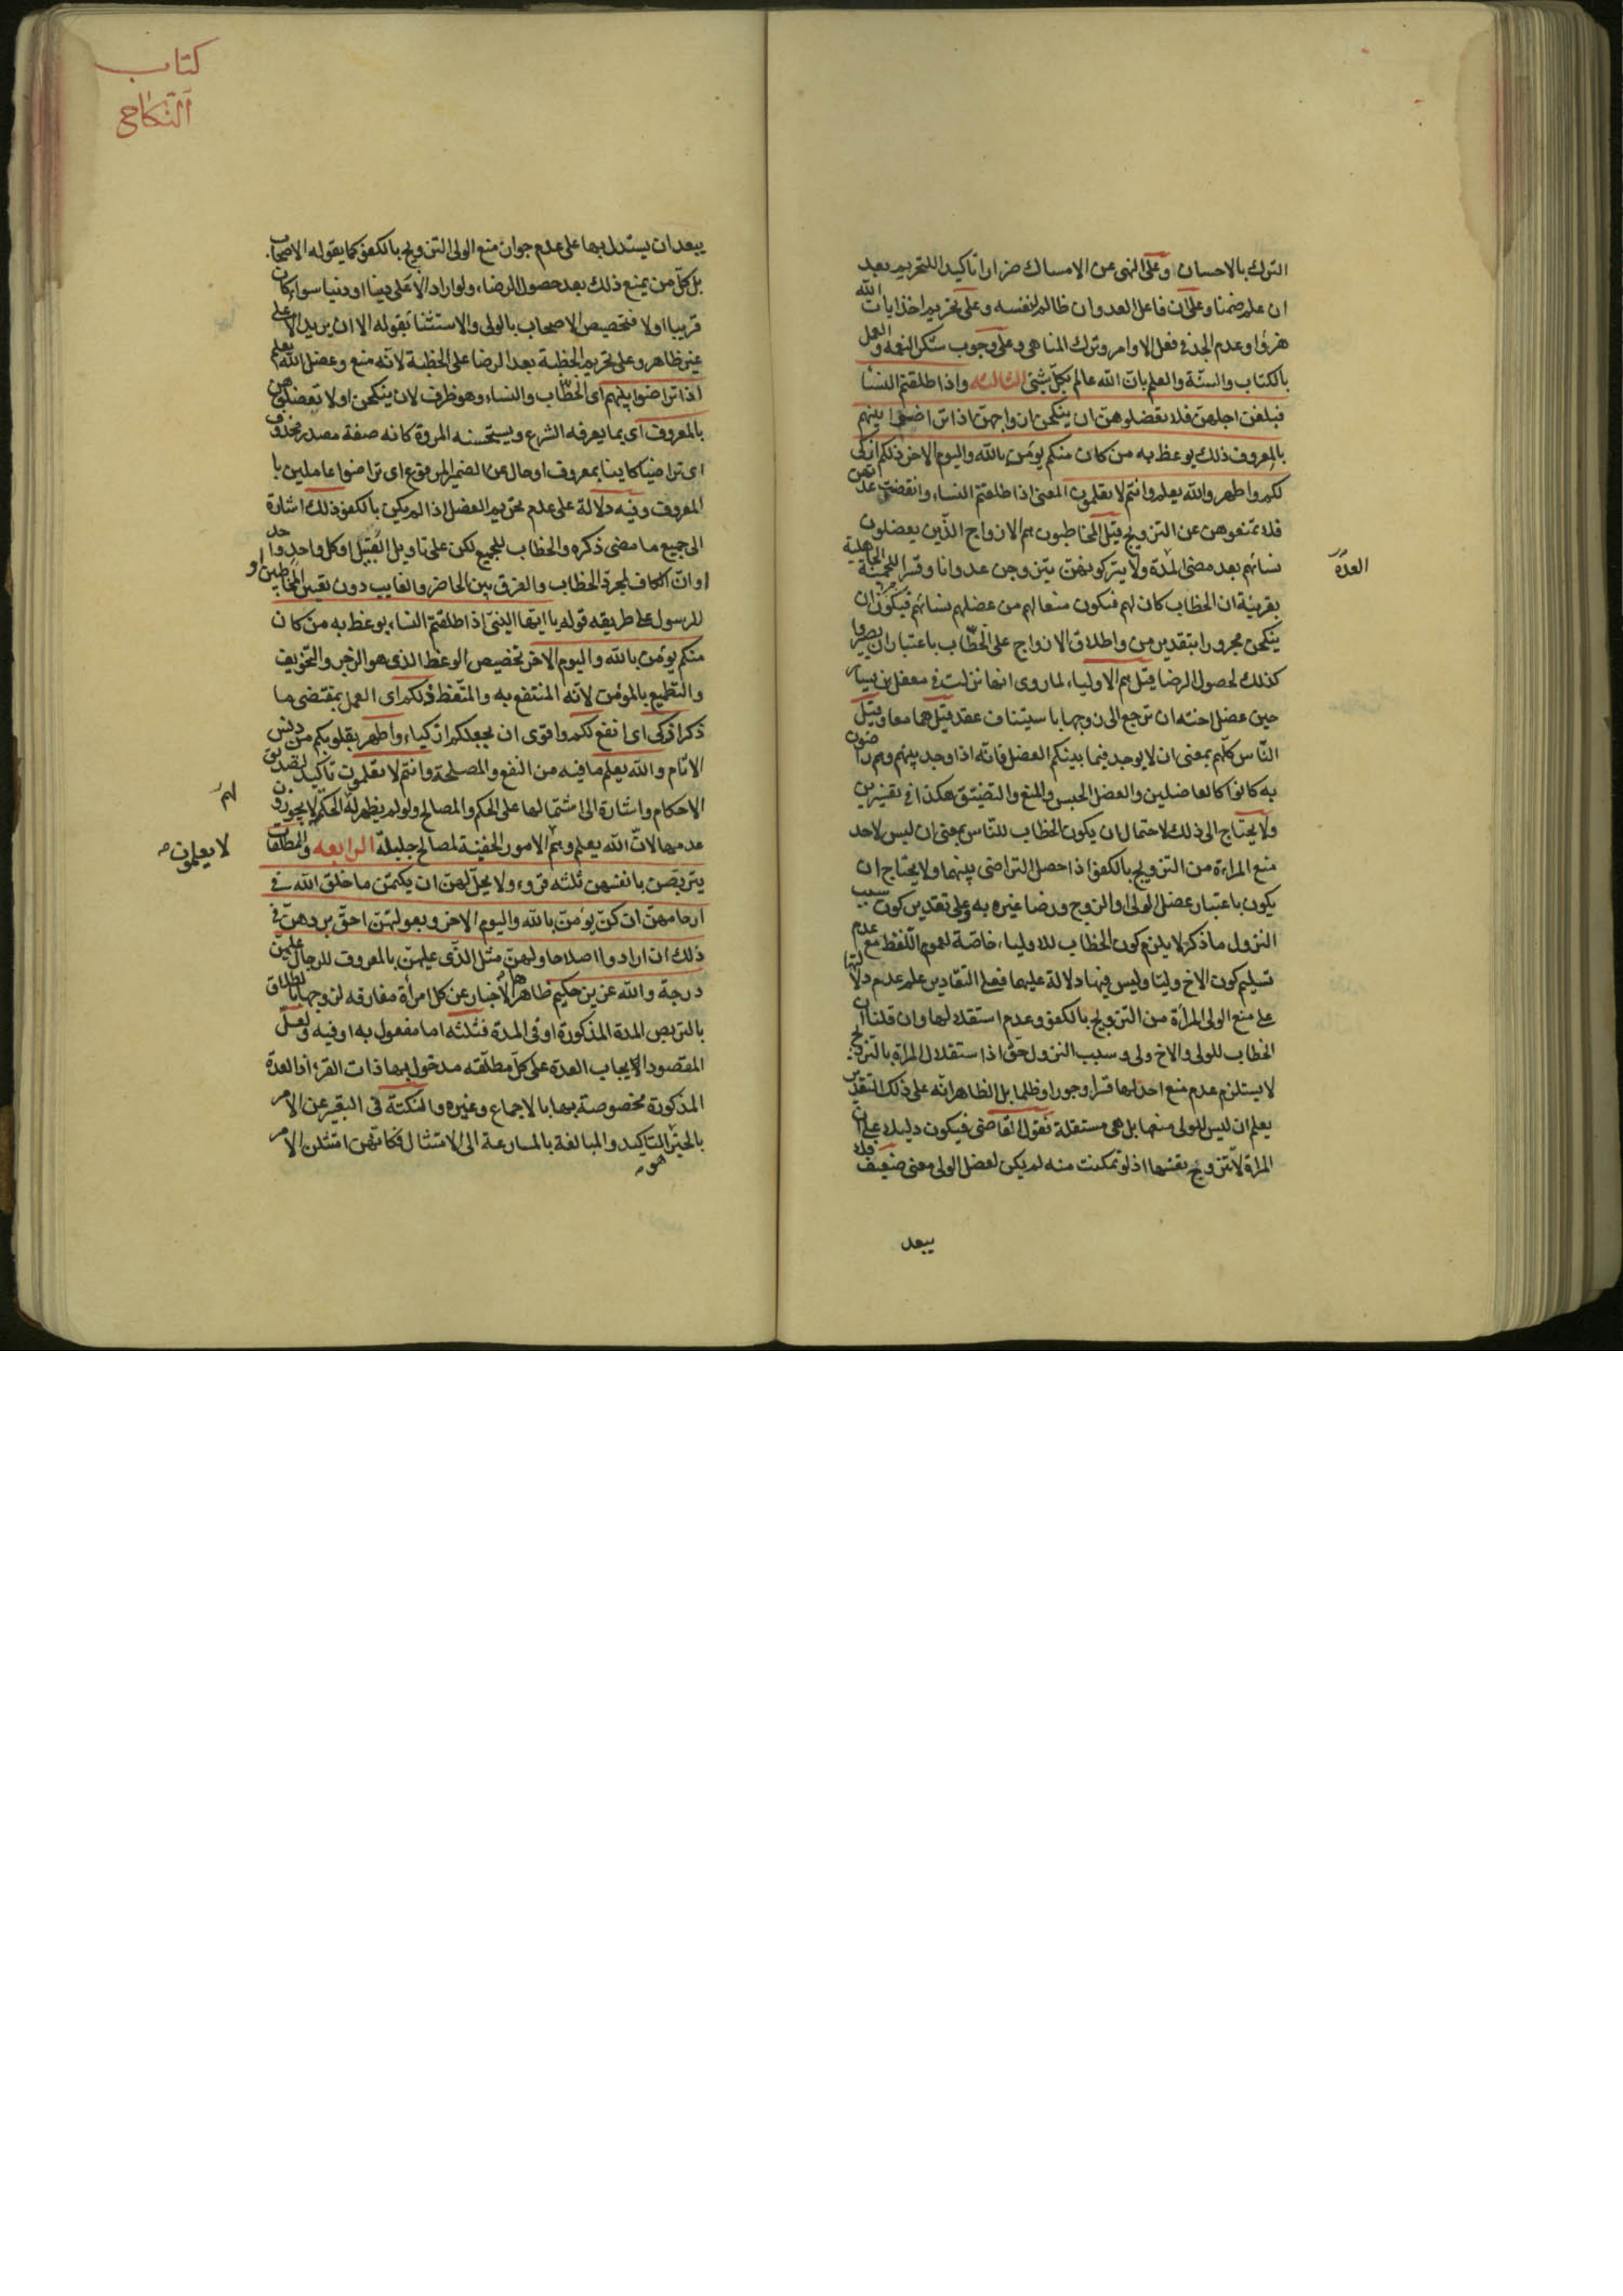 الترك بالاحسان وعلى النهى عن الامساك ضرارا تاكيدا للتحريم بعد
ان علم ضمنا وعلى ان فاعل العدوان ظالم لنفسه وعلى تحريم اخذ ايات الله
هزؤا وعدم الجد فى فعل الاوامر وترك المناهى وعلى وجوب شكر النعمه والعمل
بالكتاب والسنّة والعلم بان الله عالم بكلّ شئى الثالثه واذا طلقتم النسا
فبلغن اجلهن فلا تعضلوهن ان ينكحن ازواجهن اذا تراضوا بينهم
بالمعروف ذلك يوعظ به من كان منكم يؤمن بالله واليوم الاخر ذلكم ازكى
لكم واطهر والله يعلم وانتم لا تعلمون المعنى اذا طلقتم النساء وانقضت عدتهن
فلا تمنعوهن عن التزويج قيل المخاطبون هم الازواج الذّين يعضلون
نسائهم بعد مضى المدة ولا يتركونهن يتزوجن عدوانا وقسرا للحمية الجاهلية
العدة
بقرينة ان الخطاب كان لهم فيكون منعا لهم من عضلهم نسائهم فيكون ان
ينكحن مجرورا بتقدير من واطلاق الازواج على الخطّاب باعتبار ان يصيروا
كذلك لحصول الرضا وقيل هم الاولياء لما روى انها نزلت فى معقل بن يسار
حين عضل اخته ان ترجع الى زوجها باستيناف عقد وقيل هما معا وقيل
النّاس كلّهم بمعنى ان لا يوجد فيما بينكم العضل فانّه اذا وجد بينهم وهم راضون
به كانوا كالعاضلين والعضل الحبس والمنع والتضيّق هكذا فى تفسيرين
ولا يحتاج الى ذلك لاحتمال ان يكون الخطاب للنّاس بمعنى ان ليس لاحد
منع المراءة من التزويج بالكفو اذا حصل التراضى بينهما ولا يحتاج ان
يكون باعتبار عضل الولى او الزوج ورضا غيره به وعلى تقدير كون سبب
النزول ما ذكر لا يلزم كون الخطاب للاولياء خاصّة لعموم اللّفظ مع عدم
تسليم كون الاخ وليّا وليس فيها دلالة عليها فعلى التقادير علم عدم دلالتها
على منع الولى المرأة من التزويج بالكفو وعدم استقلالها وان قلنا ان
الخطاب للولى والاخ ولى وسبب النزول حق اذا استقلال المراة بالتزويج
لا يستلزم عدم منع احد لها قسرا وجورا وظلما بل الظاهر انّه على ذلك التقدير
يعلم ان ليس للولى منعها بل هى مستقلة فقول القاضى فيكون دليلا على ان
المراة لا تتزوج نفسها اذ لو تمكنت منه لم يكن لعضل الولى معنى ضعيف فلا
يبعد
كتاب
النّكاح
يبعد ان يستدل بها على عدم جواز منع الولى التزويج بالكفو كما يقوله الاصحاب
بل كلّ من يمنع ذلك بعد حصول الرضاء ولو اراد الاعلى دينا او دنيا سواء كان
قريبا او لا فتخصيص الاصحاب بالولى والاستثنا بقوله الا ان يريد الاعلى
غير ظاهر وعلى تحريم الخطبة بعد الرضا على الخطبة لانّه منع وعضل الله يعلم
اذا تراضوا بينهم اى الخطّاب والنساء وهو ظرف لان ينكحن او لا تعضلوهن
بالمعروف اى بما يعرفه الشرع ويستحسنه المروة كانه صفة مصدر محذوف
اى تراضيا كاينا بمعروف او حال عن الضمير المرفوع اى تراضوا عاملين با
المعروف وفيه دلالة على عدم تحريم العضل اذا لم يكن بالكفو ذلك اشارة
الى جميع ما مضى ذكره والخطاب للجميع لكن على تاويل القبيل او كل واحد واحد
او انّ الكاف لمجرد الخطاب والفرق بين الحاضر والغايب دون تعيين المخاطبين او
للرسول على طريقه قوله يا ايها النبى اذا طلقتم النساء يوعظ به من كان
منكم يؤمن بالله واليوم الاخر تخصيص الوعظ الذى هو الزجر والتخويف
والتطميع بالمؤمن لانّه المنتفع به والمتّعظ ذلكم اى العمل بمقتضى ما
ذكر ازكى اى انفع لكم واقوى ان يجعلكم ازكياء واطهر بقلوبكم من دنس
الاثام والله يعلم ما فيه من النفع والمصلحة وانتم لا تعلمون تاكيد لتصديق
الاحكام واشارة الى اشتمالها على الحكم والمصالح ولو لم يظهر له الحكم لا يجوزون
لهم
عدمها لانّ الله يعلم وهم الامور الخفية لمصالح جليلة الرابعه والمطلقات
لا يعلمون صح
يتربّصن بانفسهن ثلثه قروء ولا يحلّ لهن ان يكتمن ما خلق الله فى
ارحامهنّ ان كنّ يؤمنّ بالله واليوم الاخر وبعولتهن احقّ بردهنّ فى
ذلك ان ارادوا اصلاحا ولهنّ مثل الذّى عليهنّ بالمعروف للرجال عليهن
درجة والله عزيز حكيم ظاهرها الاخبار عن كل امرأة مفارقه لزوجها بالطلاق
بالتربص المدة المذكورة او فى المدة فثلثه اما مفعول به او فيه ولعلّ
المقصود الايجاب العدة على كلّ مطلّقه مدخول بها ذات القرؤ اذ العدّة
المذكورة مخصوصة بها بالاجماع وغيره والنكتة فى التعبير عن الامر
بالخبر التاكيد والمبالغة بالمسارعة الى الامتثال فكانهن امتثلن الامر
هو صح